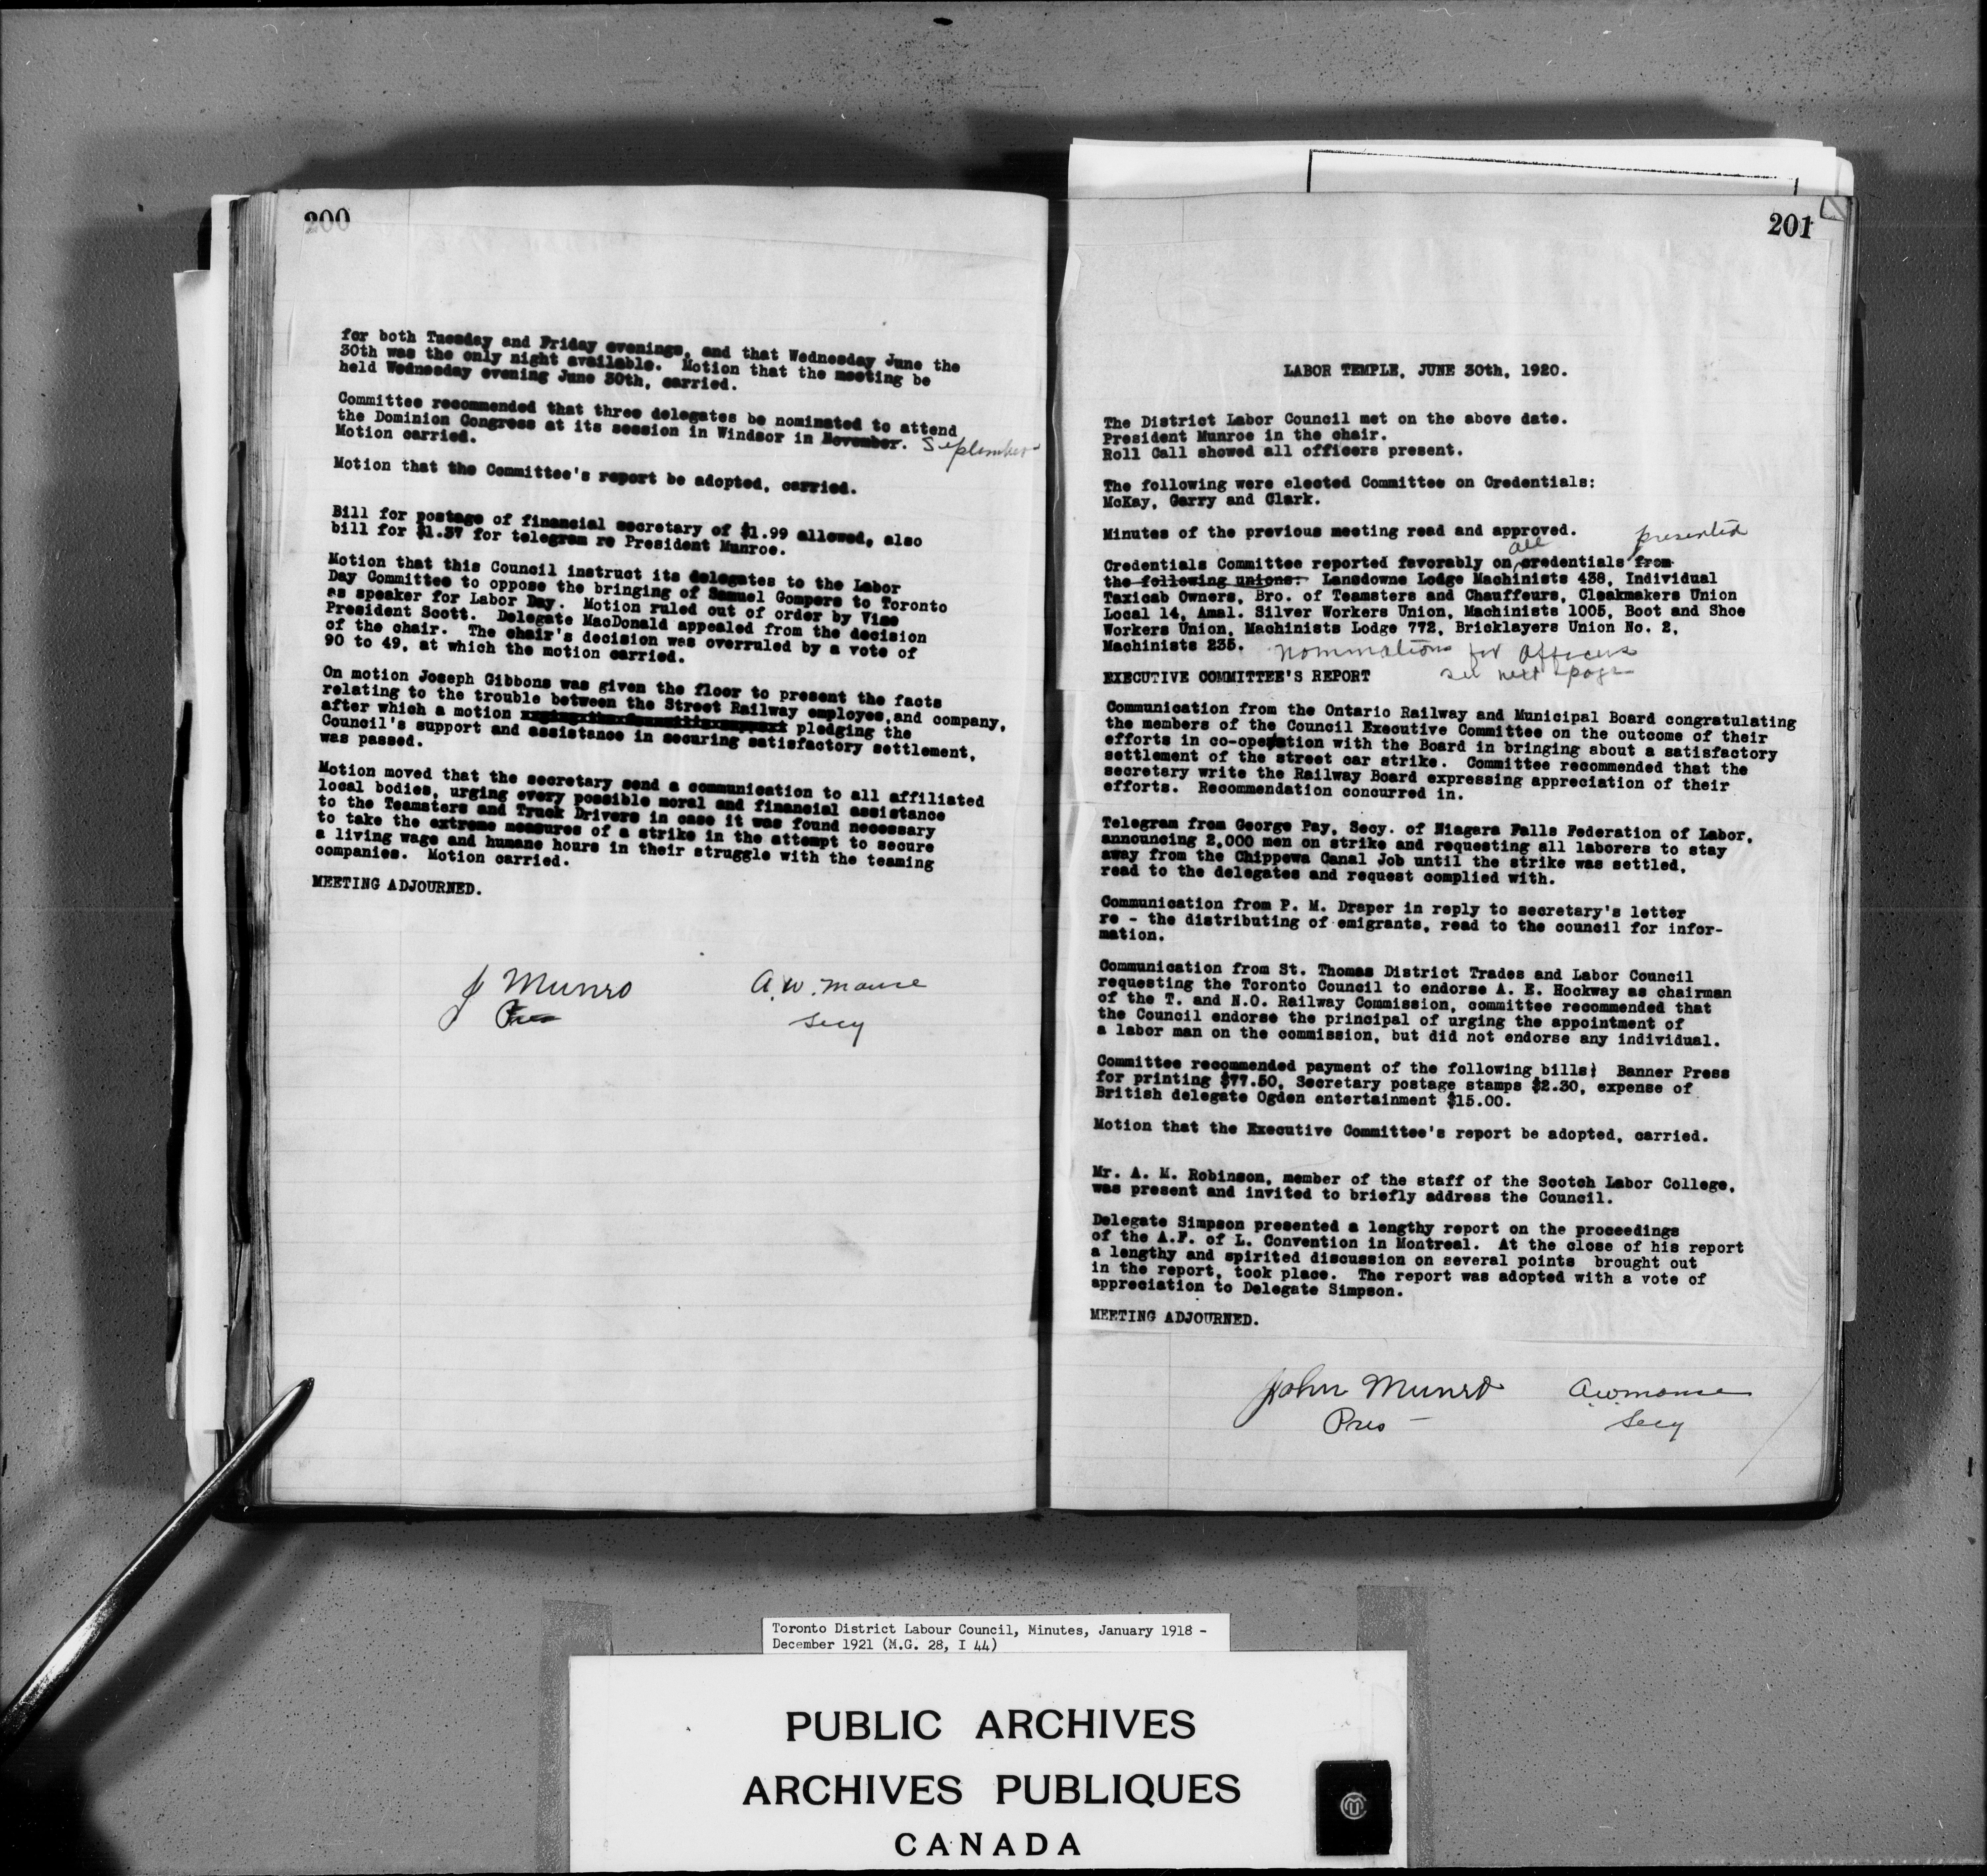 200
for both Tuesday and Friday evenings, and that Wednesday June the
30th was the only night available. Motion that the meeting be
held Wednesday evening June 30th, carried.
Committee recommended that three delegates be nominated to attend
the Dominion Congress at its session in Windsor in November. September
Motion carried.
Motion that the Committee's report be adopted, carried.
Bill for postage of financial secretary of $1.99 allowed, also
bill for $1.37 for telegram re President Munroe.
Motion that this Council instruct its delegates to the Labor
Day Committee to oppose the bringing of Samuel Gompers to Toronto
as speaker for Labor Day. Motion ruled out of order by Vice
President Scott. Delegate MacDonald appealed from the decision
of the chair. The chair's decision was overruled by a vote of
90 to 49, at which the motion carried.
On motion Joseph Gibbons was given the floor to present the facts
relating to the trouble between the Street Railway employes,and company,
after which a motion pledging the
Council's support and assistance in securing satisfactory settlement,
was passed.
Motion moved that the secretary send a communication to all affiliated
local bodies, urging every possible moral and financial assistance
to the Teamsters and Truck Drivers in case it was found necessary
to take the extreme measures of a strike in the attempt to secure
a living wage and humane hours in their struggle with the teaming
companies. Motion carried.
MEETING ADJOURNED.
J Munro A.W. Mance
Pres Secy
201
LABOR TEMPLE, JUNE 30th, 1920.
The District Labor Council met on the above date.
President Munroe in the chair.
Roll Call showed all officers present.
The following were elected Committee on Credentials:
McKay, Garry and Clark.
Minutes of the previous meeting read and approved.
all presented
Credentials Committee reported favorably on credentials from
the following unions: Lansdowne Lodge Machinists 438, Individual
Taxicab Owners, Bro. of Teamsters and Chauffeurs, Cloakmakers Union
Local 14, Amal. Silver Workers Union, Machinists 1005, Boot and Shoe
Workers Union, Machinists Lodge 772, Bricklayers Union No. 2,
Machinists 235. nominations for Officers
EXECUTIVE COMMITTEE'S REPORT see next page
Communication from the Ontario Railway and Municipal Board congratulating
the members of the Council Executive Committee on the outcome of their
efforts in co-operation with the Board in bringing about a satisfactory
settlement of the street car strike. Committee recommended that the
secretary write the Railway Board expressing appreciation of their
efforts. Recommendation concurred in.
Telegram from George Pay, Secy. of Niagara Falls Federation of Labor,
announcing 2,000 men on strike and requesting all laborers to stay
away from the Chippewa Canal Job until the strike was settled,
read to the delegates and request complied with.
Communication from P. M. Draper in reply to secretary's letter
re - the distributing of emigrants, read to the council for infor-
mation.
Communication from St. Thomas District Trades and Labor Council
requesting the Toronto Council to endorse A. E. Hockway as chairman
of the T. and N.O. Railway Commission, committee recommended that
the Council endorse the principal of urging the appointment of
a labor man on the commission, but did not endorse any individual.
Committee recommended payment of the following bills; Banner Press
for printing $77.50, Secretary postage stamps $2.30, expense of
British delegate Ogden entertainment $15.00.
Motion that the Executive Committee's report be adopted, carried.
Mr. A. M. Robinson, member of the staff of the Scotch Labor College,
was present and invited to briefly address the Council.
Delegate Simpson presented a lengthy report on the proceedings
of the A.F. of L. Convention in Montreal. At the close of his report
a lengthy and spirited discussion on several points brought out
in the report, took place. The report was adopted with a vote of
appreciation to Delegate Simpson.
MEETING ADJOURNED.
John Munro A.W. Mance
Pres - Secy
Toronto District Labour Council, Minutes, January 1918 -
December 1921 (M.G. 28, I 44)
PUBLIC ARCHIVES
ARCHIVES PUBLIQUES
CANADA